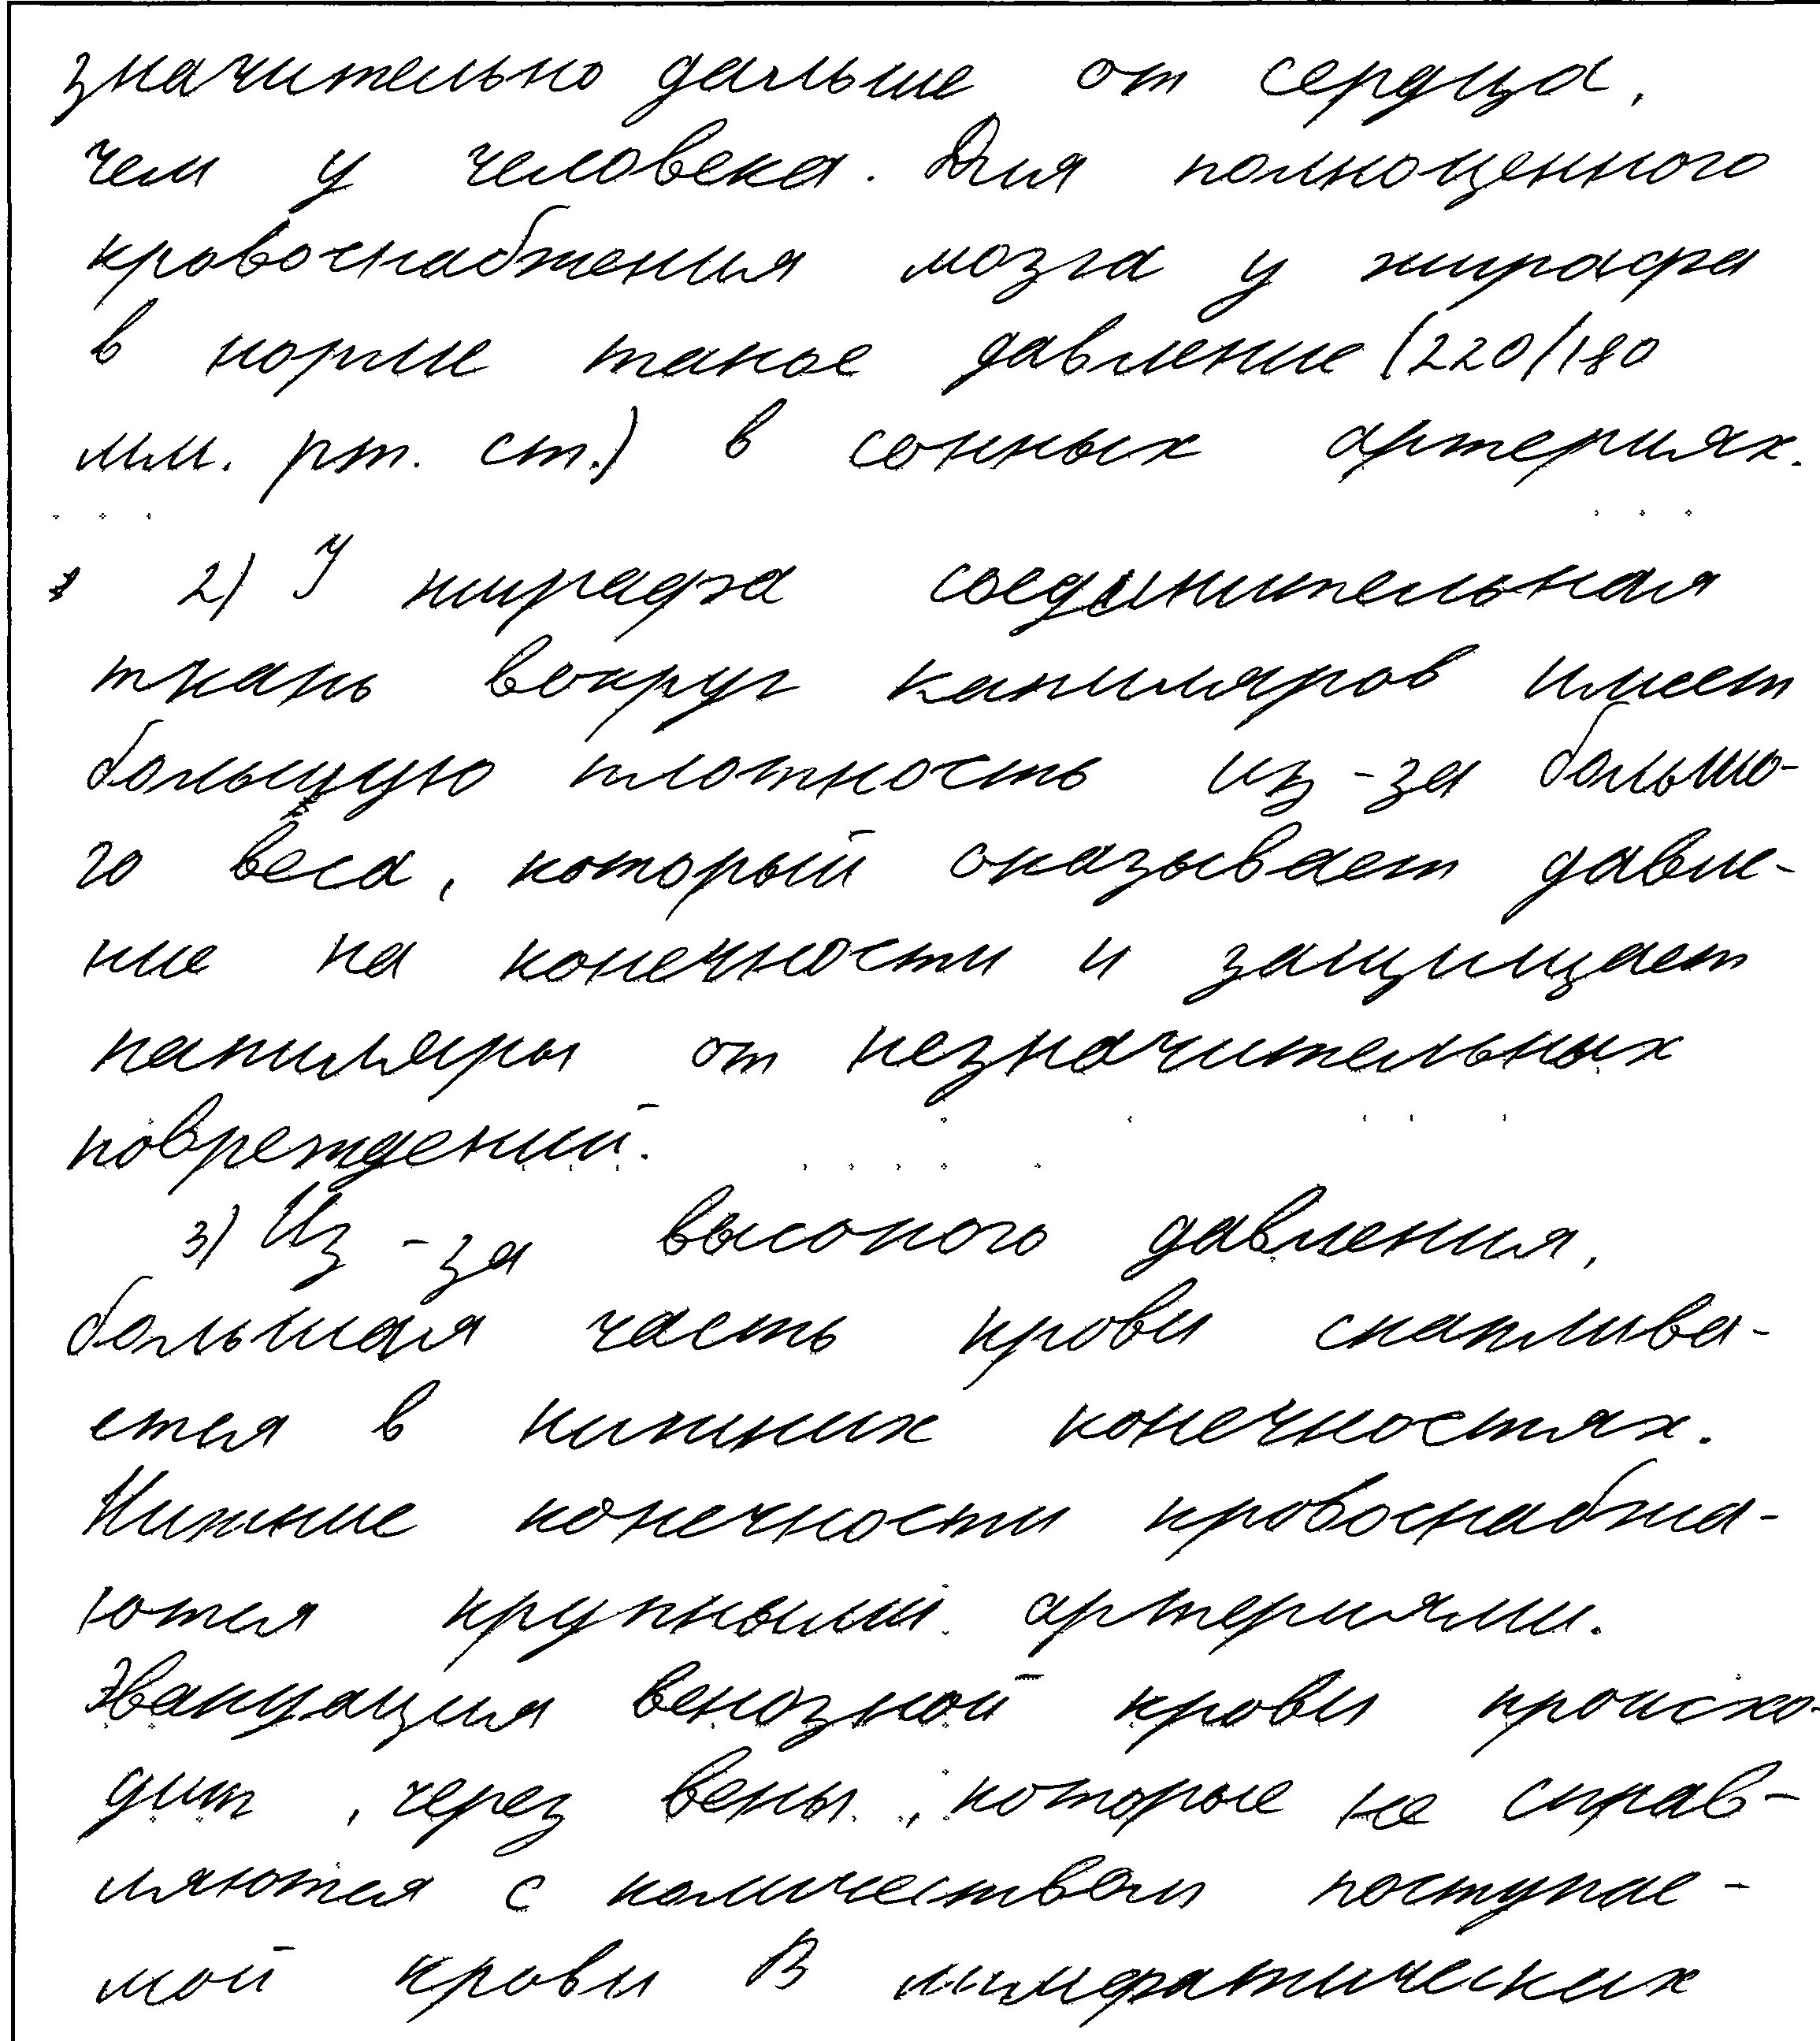 значительно дальше от сердца,
чем у человека. Для полноценного
кровоснабжения мозга у жирафа
в норме такое давление (220/180
мм. рт. ст.) в сонных артериях.
2) У жирафа соединительная
ткань вокруг капиляров имеет
большую плотность из-за большо-
го веса, который оказывает давле-
ние на конечности и защищает
капиляры от незначительных
повреждений.
3) Из-за высокого давления,
большая часть крови скаплива-
ется в нижних конечностях.
Нижние конечности кровоснабжа-
ются крупными артериями.
Эвакуация венозной крови происхо-
дит, через вены, которые не справ-
ляются с количеством поступае-
мой крови В лимфатических